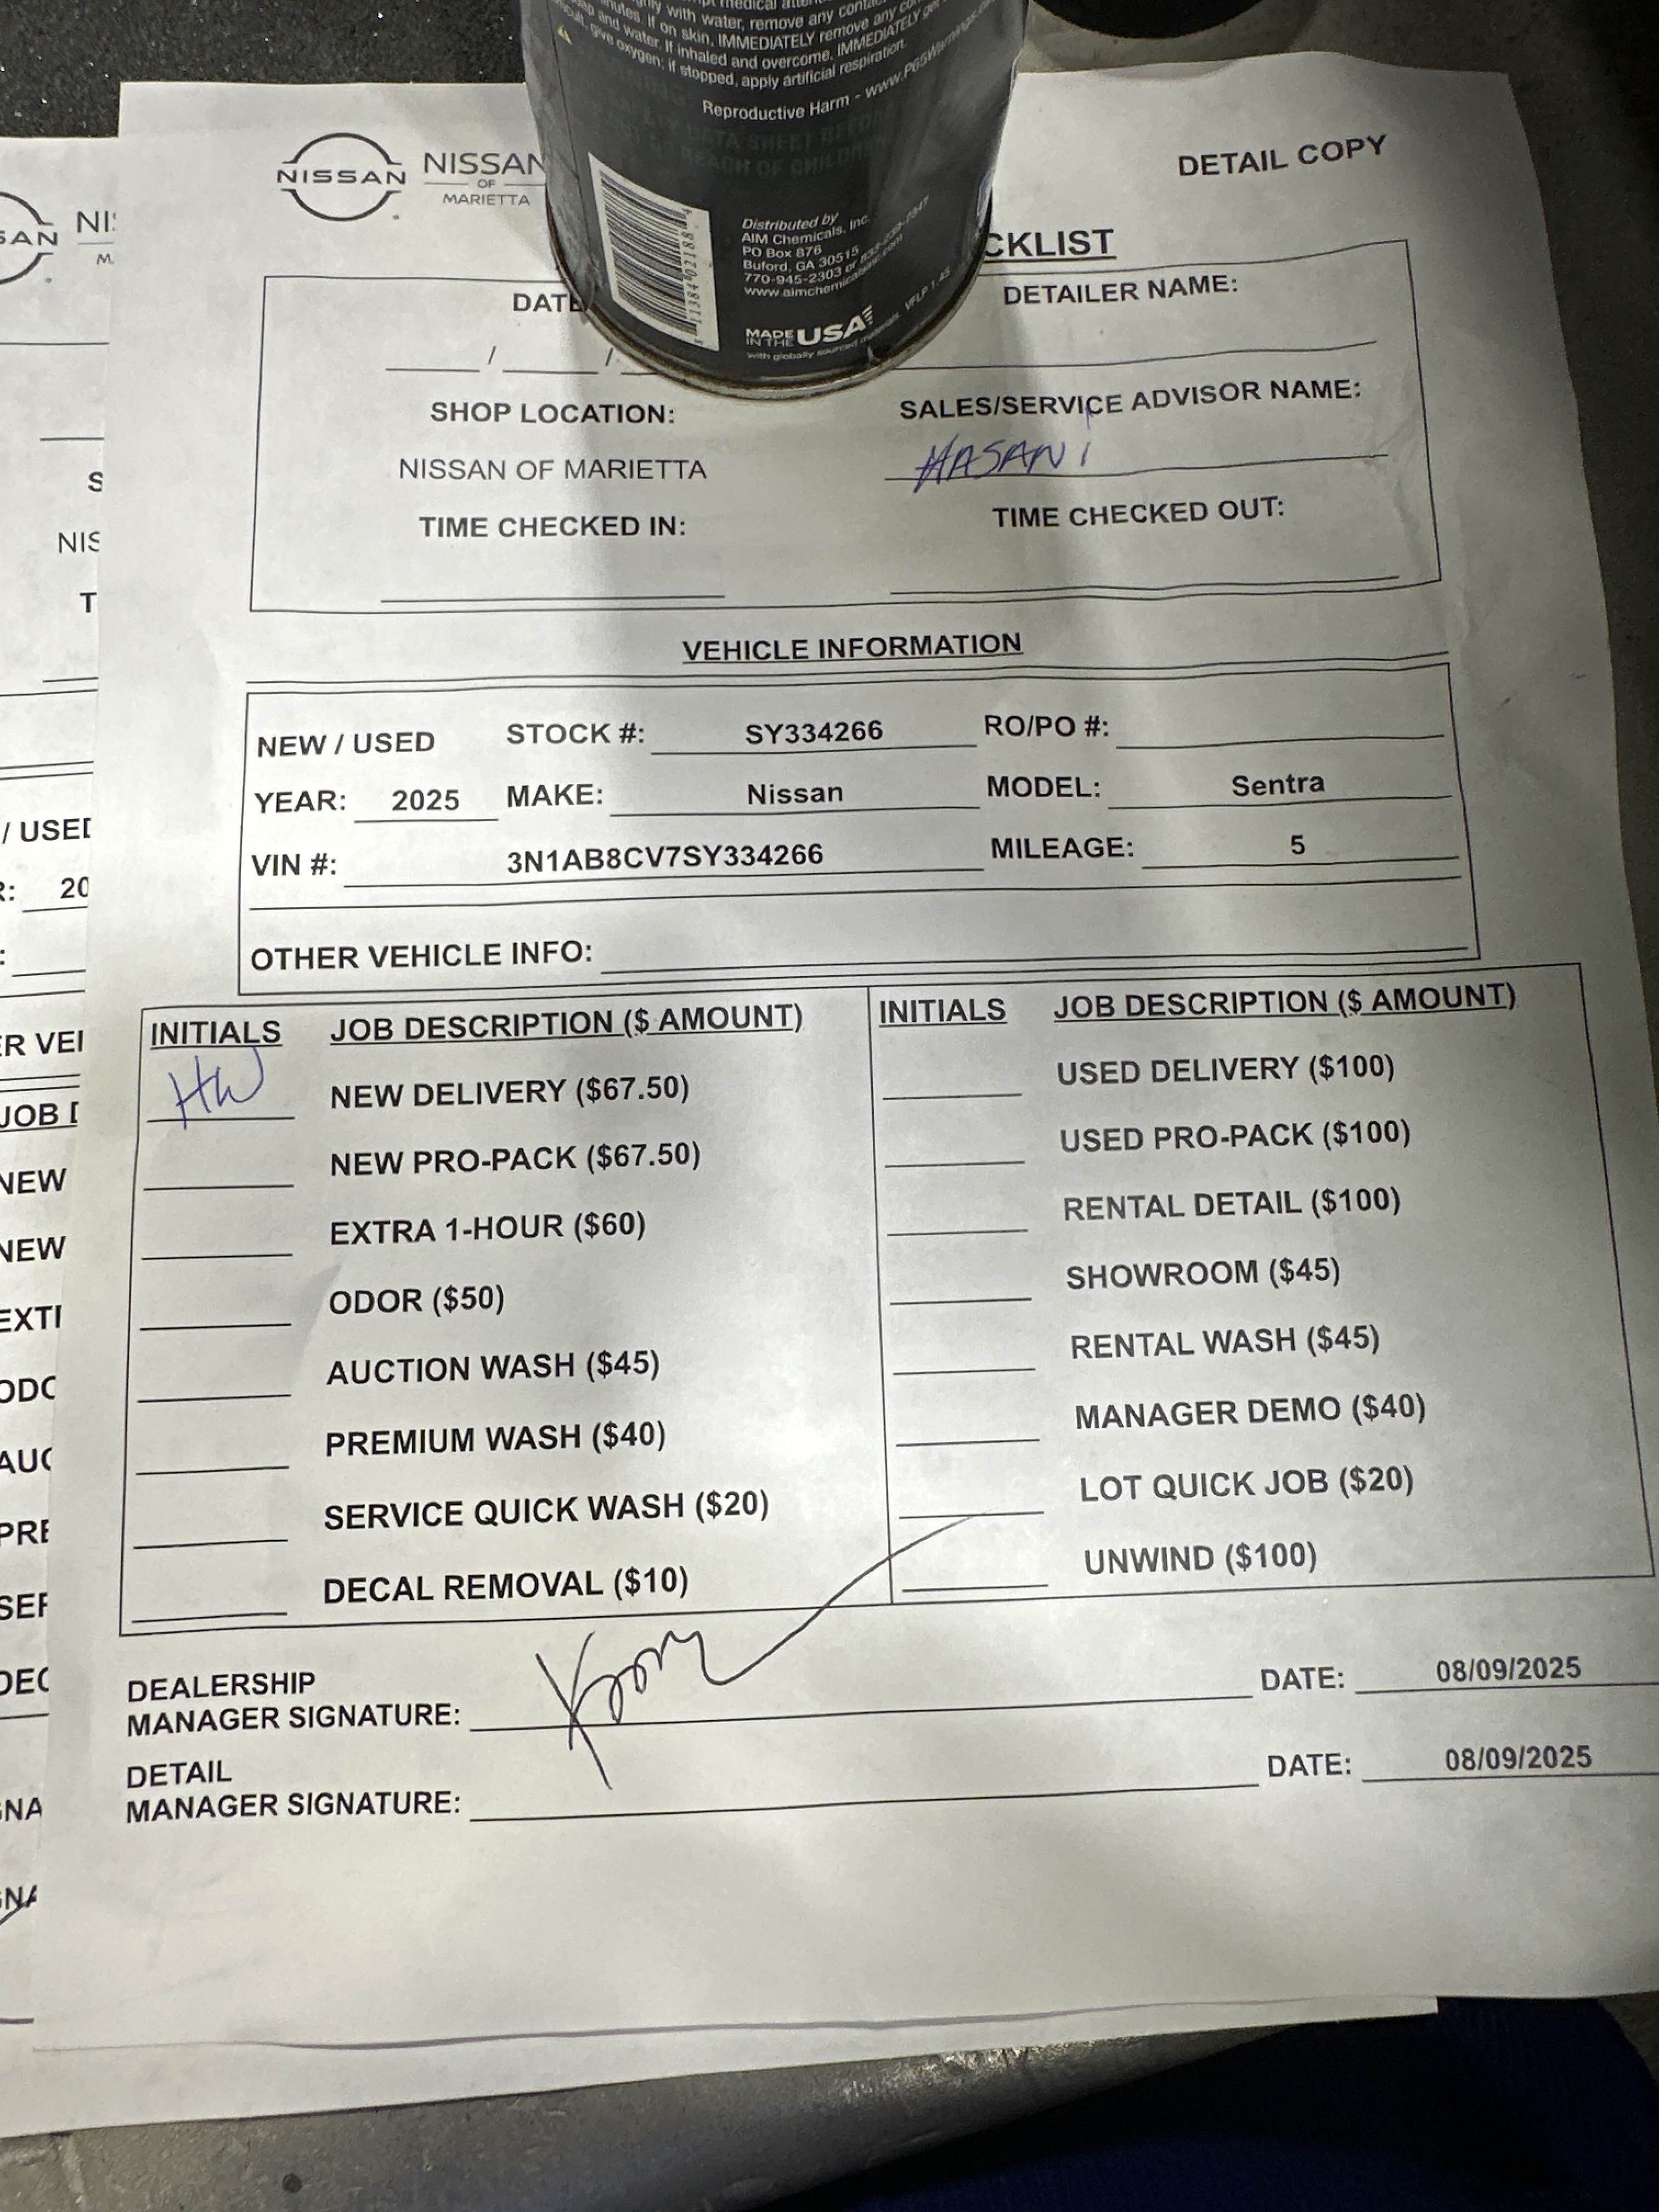 with water, remove any
If on skin, IMMEDIATELY remove any
and water. If inhaled and overcome, IMMEDIATELY
give oxygen; if stopped, apply artificial respiration.
Reproductive Harm - www.P65Warnings.
Distributed by
AIM Chemicals, Inc.
PO Box 876
Buford, GA 30515
770-945-2303 or
MADE IN THE USA
with globally sourced materials. VFLP 1.45
NISSAN
NISSAN
OF
MARIETTA
DETAIL COPY
CKLIST
DATE
DETAILER NAME:
/ /
SHOP LOCATION:
SALES/SERVICE ADVISOR NAME:
NISSAN OF MARIETTA
HASANI
TIME CHECKED IN:
TIME CHECKED OUT:
VEHICLE INFORMATION
NEW / USED STOCK #: SY334266 RO/PO #:
YEAR: 2025 MAKE: Nissan MODEL: Sentra
VIN #: 3N1AB8CV7SY334266 MILEAGE: 5
OTHER VEHICLE INFO:
INITIALS JOB DESCRIPTION ($ AMOUNT)
HW NEW DELIVERY ($67.50)
NEW PRO-PACK ($67.50)
EXTRA 1-HOUR ($60)
ODOR ($50)
AUCTION WASH ($45)
PREMIUM WASH ($40)
SERVICE QUICK WASH ($20)
DECAL REMOVAL ($10)
INITIALS JOB DESCRIPTION ($ AMOUNT)
USED DELIVERY ($100)
USED PRO-PACK ($100)
RENTAL DETAIL ($100)
SHOWROOM ($45)
RENTAL WASH ($45)
MANAGER DEMO ($40)
LOT QUICK JOB ($20)
UNWIND ($100)
DEALERSHIP
MANAGER SIGNATURE: DATE: 08/09/2025
DETAIL
MANAGER SIGNATURE: DATE: 08/09/2025
SAN
NI
M
S
NIS
T
/ USED
R: 20
:
R VEI
JOB D
NEW
NEW
EXT
ODO
AUC
PRE
SER
DEC
GNA
GNA